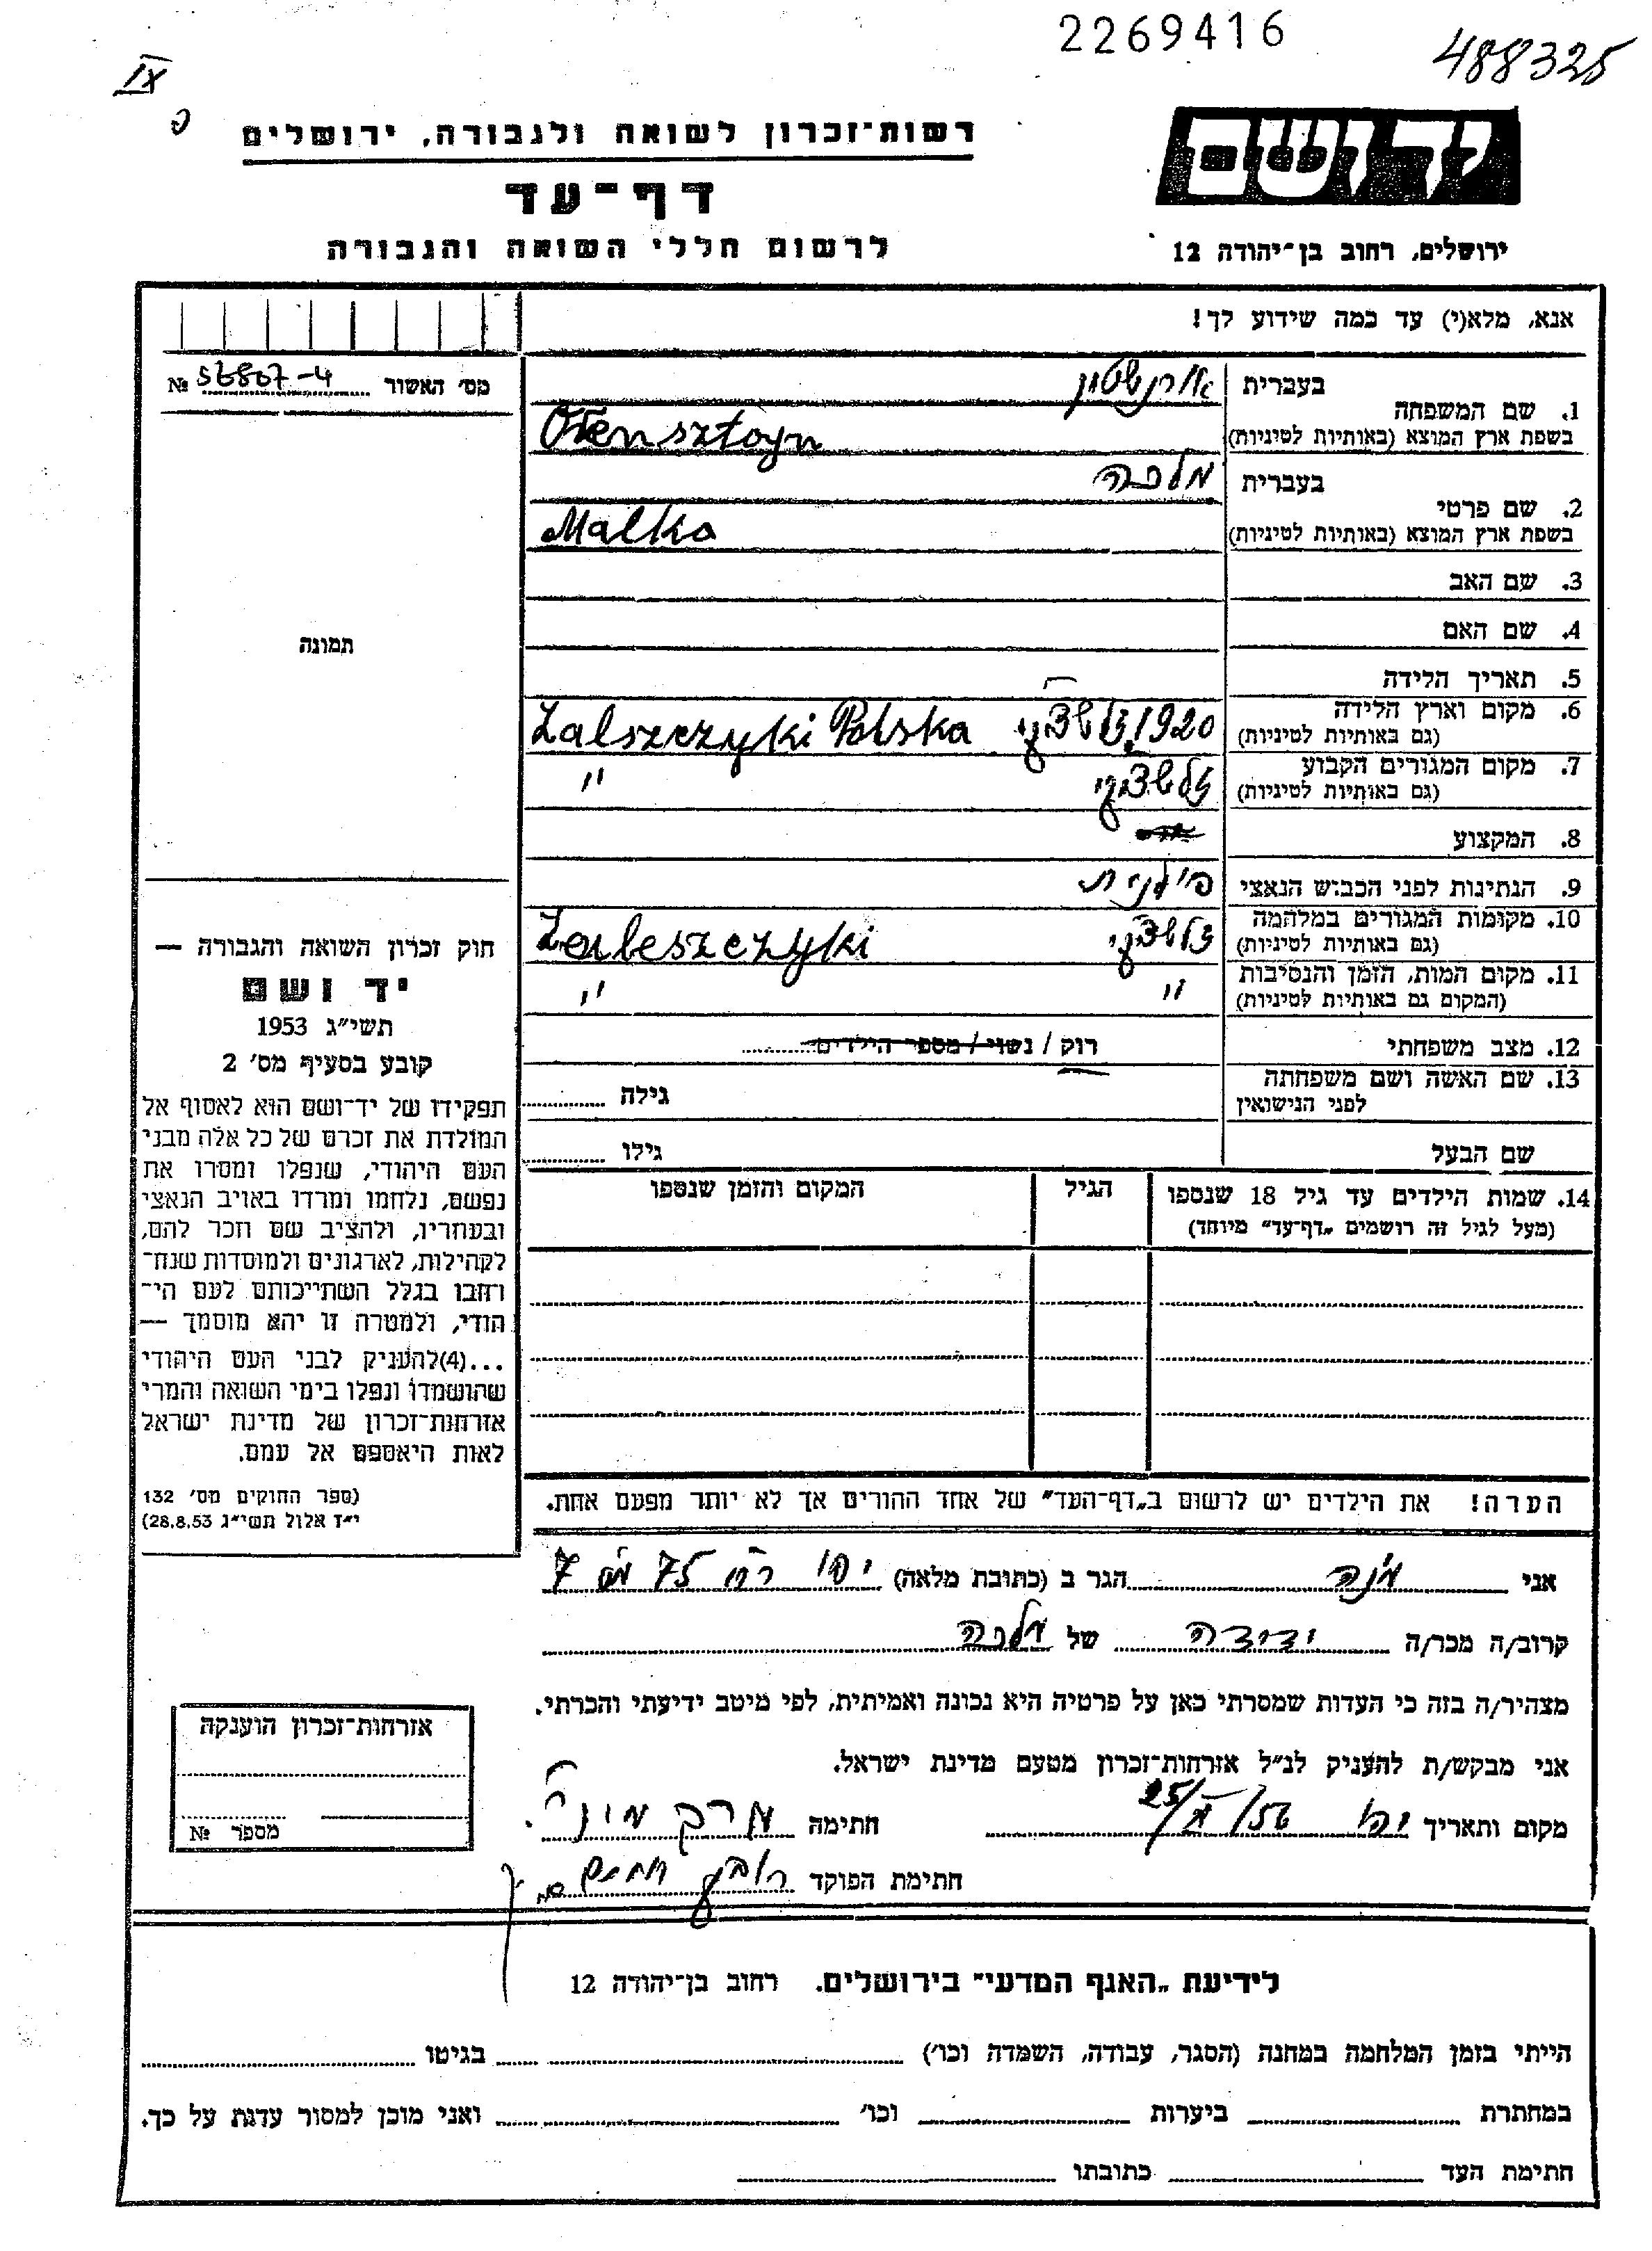 2269416
488325
IX
רשות־זכרון לשואה ולגבורה, ירושלים
יד ושם
דף־עד
לרשום חללי השואה והגבורה
ירושלים, רחוב בן־יהודה 12
אנא, מלא(י) עד כמה שידוע לך!
מס׳ האשור № 56807-4
בעברית
1. שם המשפחה
בשפת ארץ המוצא (באותיות לטיניות)
מלכה בעברית
2. שם פרטי
בשפת ארץ המוצא (באותיות לטיניות) Malka
3. שם האב
4. שם האם
תמונה
5. תאריך הלידה
6. מקום וארץ הלידה
(גם באותיות לטיניות) 1920 Zalszczyki Polska
7. מקום המגורים הקבוע
(גם באותיות לטיניות) "
8. המקצוע
9. הנתינות לפני הכבוש הנאצי פולנית
10. מקומות המגורים במלחמה
(גם באותיות לטיניות) Zaleszczyki
11. מקום המות, הזמן והנסיבות " "
(המקום גם באותיות לטיניות)
12. מצב משפחתי רוק / נשוי / מספר הילדים
13. שם האשה ושם משפחתה
לפני הנישואין גילה
שם הבעל גילו
14. שמות הילדים עד גיל 18 שנספו הגיל המקום והזמן שנספו
(מעל לגיל זה רושמים „דף־עד" מיוחד)
הערה! את הילדים יש לרשום ב„דף־העד" של אחד ההורים אך לא יותר מפעם אחת.
חוק זכרון השואה והגבורה —
יד ושם
תשי״ג 1953
קובע בסעיף מס׳ 2
תפקידו של יד־ושם הוא לאסוף אל
המולדת את זכרם של כל אלה מבני
העם היהודי, שנפלו ומסרו את
נפשם, נלחמו ומרדו באויב הנאצי
ובעוזריו, ולהציב שם וזכר להם,
לקהילות, לארגונים ולמוסדות שנח־
רחבו בגלל השתייכותם לעם הי־
הודי, ולמטרה זו יהא מוסמך —
...(4)להעניק לבני העם היהודי
שהושמדו ונפלו בימי השואה והמרי
אזרחות־זכרון של מדינת ישראל
לאות היאספם אל עמם.
(ספר החוקים מס׳ 132
י״ד אלול תשי״ג 28.8.53)
אני הגר ב (כתובת מלאה) יפו 75 7
קרוב/ה מכר/ה ידידה של מלכה
מצהיר/ה בזה כי העדות שמסרתי כאן על פרטיה היא נכונה ואמיתית, לפי מיטב ידיעתי והכרתי.
אני מבקש/ת להעניק לנ״ל אזרחות־זכרון מטעם מדינת ישראל.
מקום ותאריך יפו 56 25 חתימה
חתימת הפוקד
אזרחות־זכרון הוענקה
מספר №
לידיעת „האגף המדעי" בירושלים. רחוב בן־יהודה 12
הייתי בזמן המלחמה במחנה (הסגר, עבודה, השמדה וכו׳) בגיטו
במחתרת ביערות וכו׳ ואני מוכן למסור עדות על כך.
חתימת העד כתובתו